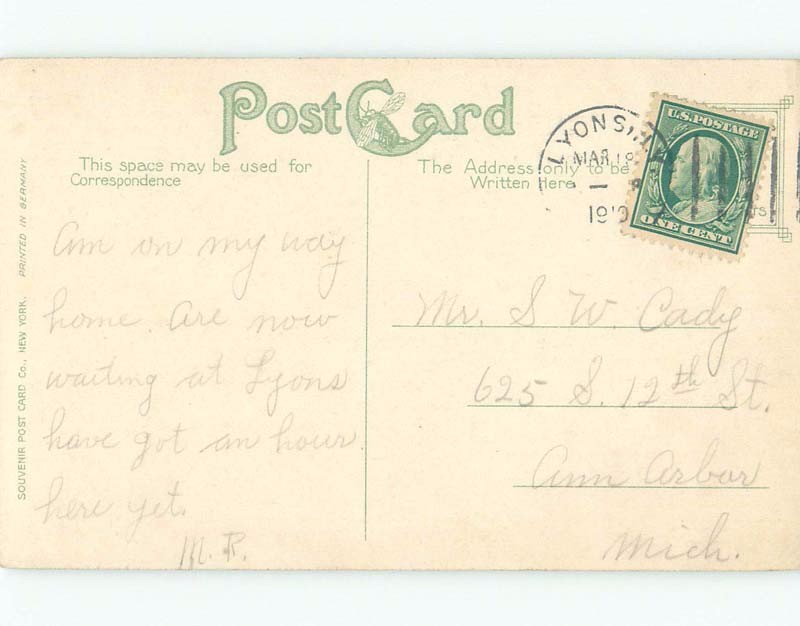 Post Card
This space may be used for
Correspondence
The Address only to be
Written Here
LYONS,
MAR 18
1910
U.S. POSTAGE
ONE CENT
PRINTED IN GERMANY
SOUVENIR POST CARD CO., NEW YORK.
Am on my way
home. Are now
waiting at Lyons
have got an hour
here yet.
M. R.
Mr. S W. Cady
625 S. 12th St.
Ann Arbor
Mich.